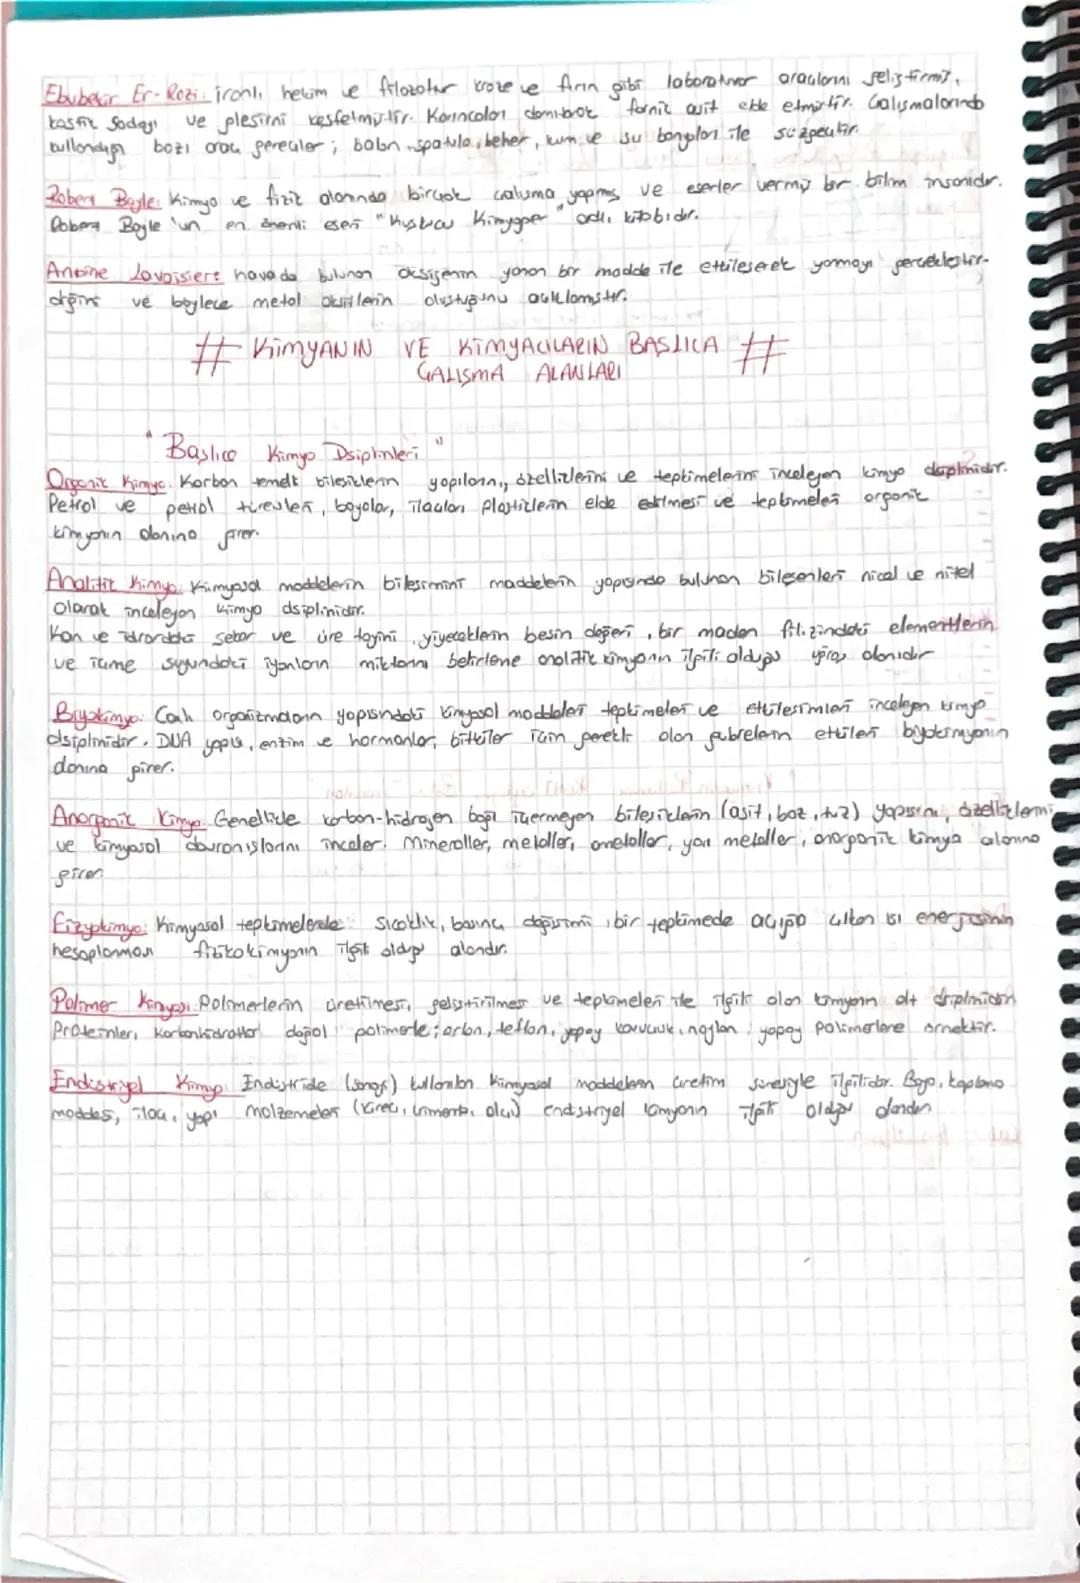 Ebubekir Er-Razi: İranlı hekim ve filozotur kroze ve fırın gibi laboratuvar araçlarını geliştirmiş,
kostik sodayı ve gliserini keşfetmiştir. Karıncaları damıtarak formik asit elde etmiştir. Çalışmalarında
kullandığı bazı araç gereçler; balon, spatula, beher, kum ve su banyoları ile süzgeçtir.
Robert Boyle: Kimya ve fizik alanında birçok çalışma yapmış ve eserler vermiş bir bilim insanıdır.
Robert Boyle'un en önemli eseri "Kuşkucu Kimyager" adlı kitabıdır.
Antoine Lavoisiere havada bulunan oksijenin yanan bir madde ile etkileşerek yanmayı gerçekleştir-
diğini ve böylece metal oksitlerin oluştuğunu açıklamıştır.
# KİMYANIN VE KİMYACILARIN BAŞLICA #
ÇALIŞMA ALANLARI
"Başlıca Kimya Dsiplinleri"
Organik Kimya: Karbon temelli bileşiklerin yapılarını, özelliklerini ve tepkimelerini inceleyen kimya dsiplinidir.
Petrol ve petrol türevleri, boyalar, ilaçlar, plastiklerin elde edilmesi ve tepkimeleri organik
kimyanın alanına girer.
Analitik Kimya: Kimyasal maddelerin bileşimini maddelerin yapısında bulunan bileşenleri nicel ve nitel
olarak inceleyen kimya dsiplinidir.
Kan ve idrardaki şeker ve üre tayini, yiyeceklerin besin değeri, bir maden filizindeki elementlerin
ve içme suyundaki iyonların miktarını belirleme analitik kimyanın ilgili olduğu alanıdır
Biyokimya: Canlı organizmaların yapısındaki kimyasal maddeleri tepkimeleri ve etkileşimleri inceleyen kimya
dsiplinidir. DNA yapısı, enzim ve hormonlar, bitkiler için gerekli olan gübrelerin etkileri biyokimyanın
alanına girer.
Anorganik Kimya: Genellikle karbon-hidrojen bağı içermeyen bileşiklerin (asit, baz, tuz) yapısını, özelliklerini
ve kimyasal davranışlarını inceler. Mineraller, metaller, ametaller, yarı metaller, anorganik kimya alanına
girer.
Fizyokimya: Kimyasal tepkimelerde sıcaklık, basınç değişimi, bir tepkimede açığa çıkan ısı enerjisinin
hesaplanması fizikokimyanın ilgili olduğu alandır.
Polimer Kimyası: Polimerlerin üretilmesi, geliştirilmesi ve tepkimeleri ile ilgili olan kimyanın alt dsiplinidir
Proteinler, Karbonhidratlar doğal polimerle; orlon, teflon, yapay kauçuk, naylon yapay polimerlere örnektir.
Endüstriyel Kimya: Endüstride (sanayi) kullanılan kimyasal maddelerin üretim süreciyle ilgilidir. Boya, kaplama
maddesi, ilaç, yapı malzemeleri (kireç, çimento, alçı) endüstriyel kimyanın ilgili olduğu alandır